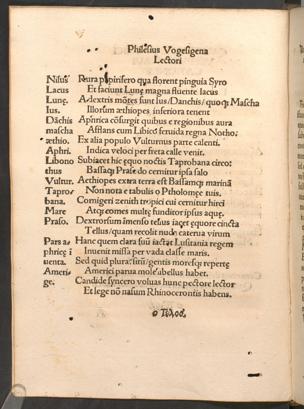 Philesius Vogesigena
Lectori
Nilus Rura papirifero qua florent pinguia Syro
Lacus Et faciunt Lunę magna fluente lacus
Lunę. A dextris mõtes sunt Ius/Danchis/quoq; Mascha
Ius. Illorum æthiopes inferiora tenent
Dãchis Aphrica cõsurgit quibus e regionibus aura
mascha Afflans cum Libico feruida regna Notho.
æthio. Ex alia populo Vulturnus parte calenti.
Aphri. Indica veloci per freta calle venit.
Libono Subiacet hic equo noctis Taprobana circo:
thus Bassaq; Praso do cernitur ipsa salo
Vultur. Aethiopes extra terra est Bassamq; marinã
Tapro Non nota e tabulis o Ptholomęe tuis.
bana. Cornigeri zenith tropici cui cernitur hirci
Mare Atq; comes multę funditor ipsus aquę.
Praso. Dextrorsum ĩmenso tellus iacet equore cincta
Tellus/quam recolit nuda caterua virum.
Pars a Hanc quem clara suũ iactat Lusitania regem
phricę ĩ Inuenit missa per vada classe maris.
uenta. Sed quid plura: sitũ/gentis moresq; repertę
Ameri Americi parua mole libellus habet.
ge. Candide syncero voluas hunc pectore lector
Et lege nõ nasum Rhinocerontis habens.
ο Τέλος.